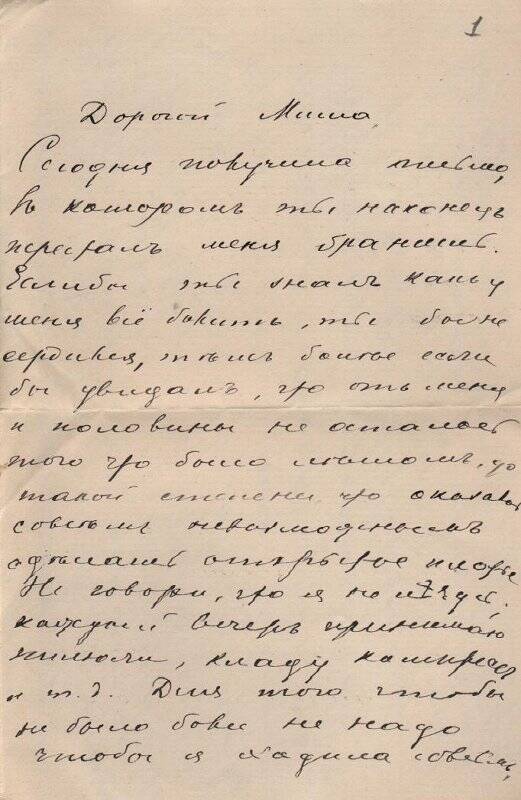 1
Дорогой Миша,
Сегодня получила письмо,
въ которомъ ты наконецъ
пересталъ меня бранить.
Еслибы ты зналъ какъ у
меня всё болитъ, ты бы не
сердился, тѣмъ больше если
бы увидалъ, что отъ меня
и половины не осталось
того что было лѣтомъ, до
такой степени, что оказалось
совсѣмъ невозможностью
одѣвать открытое платье
Не говори, что я не лѣчусь,
каждый вечеръ принимаю
пилюли, кладу компрессъ
и т.д. Для того чтобы
не было боли не надо
чтобы я ходила совсѣмъ,